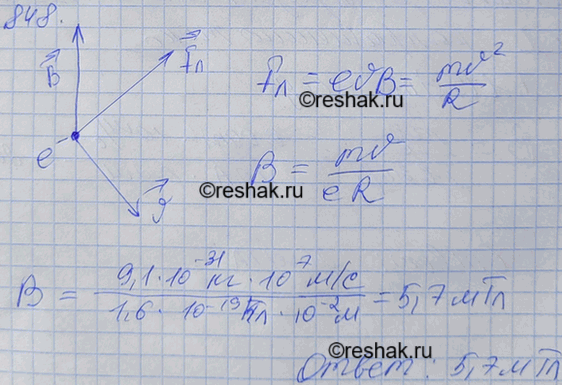 848.
B⃗ F⃗л
Fл = eϑB = mϑ²/R
©reshak.ru
e⁻ ϑ⃗
B = mϑ/eR
©reshak.ru
B = 9,1·10⁻³¹кг·10⁷м/с / 1,6·10⁻¹⁹Кл·10⁻²м = 5,7мТл
©reshak.ru
Ответ: 5,7мТл